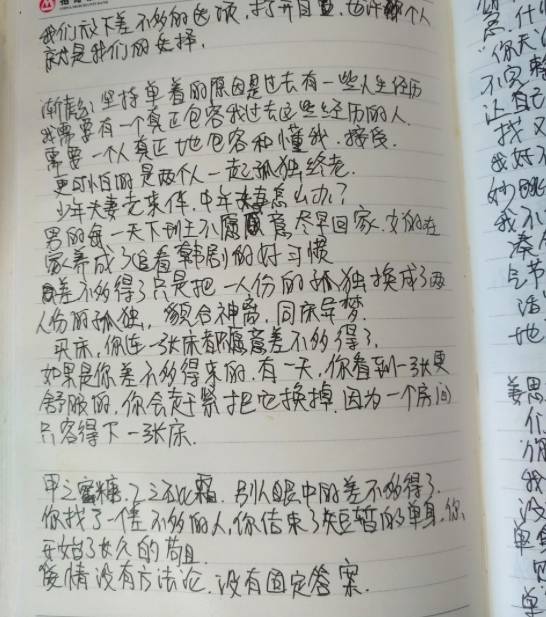 我们放下差不多的选项，打开自己，也许那个人
就是我们的选择，
渐彪：坚持单着的原因是过去有一些人生经历
我需要有一个真正包容我过去这些经历的人。
需要一个人真正地包容和懂我，接受。
更可怕的是两个人一起孤独终老。
少年夫妻老来伴，中年夫妻怎么办？
男的每一天下班不愿意尽早回家，女的在
家养成了追看韩剧的好习惯
差不多得了只是把一人份的孤独换成了两
人份的孤独，貌合神离，同床异梦。
买床，你连一张床都愿意差不多得了，
如果是你差不多得来的，有一天，你看到一张更
舒服的，你会赶紧把它换掉，因为一个房间
只容得下一张床。
甲之蜜糖，乙之砒霜，别人眼中的差不多得了。
你找了一个差不多的人，你结束了短暂的单身，你
开始了长久的苟且
爱情没有方法论，没有固定答案。
你天
不只
让自己
找又
我好
我不
凑
气节
活
地
姜思
们
你
我
没
单身
单